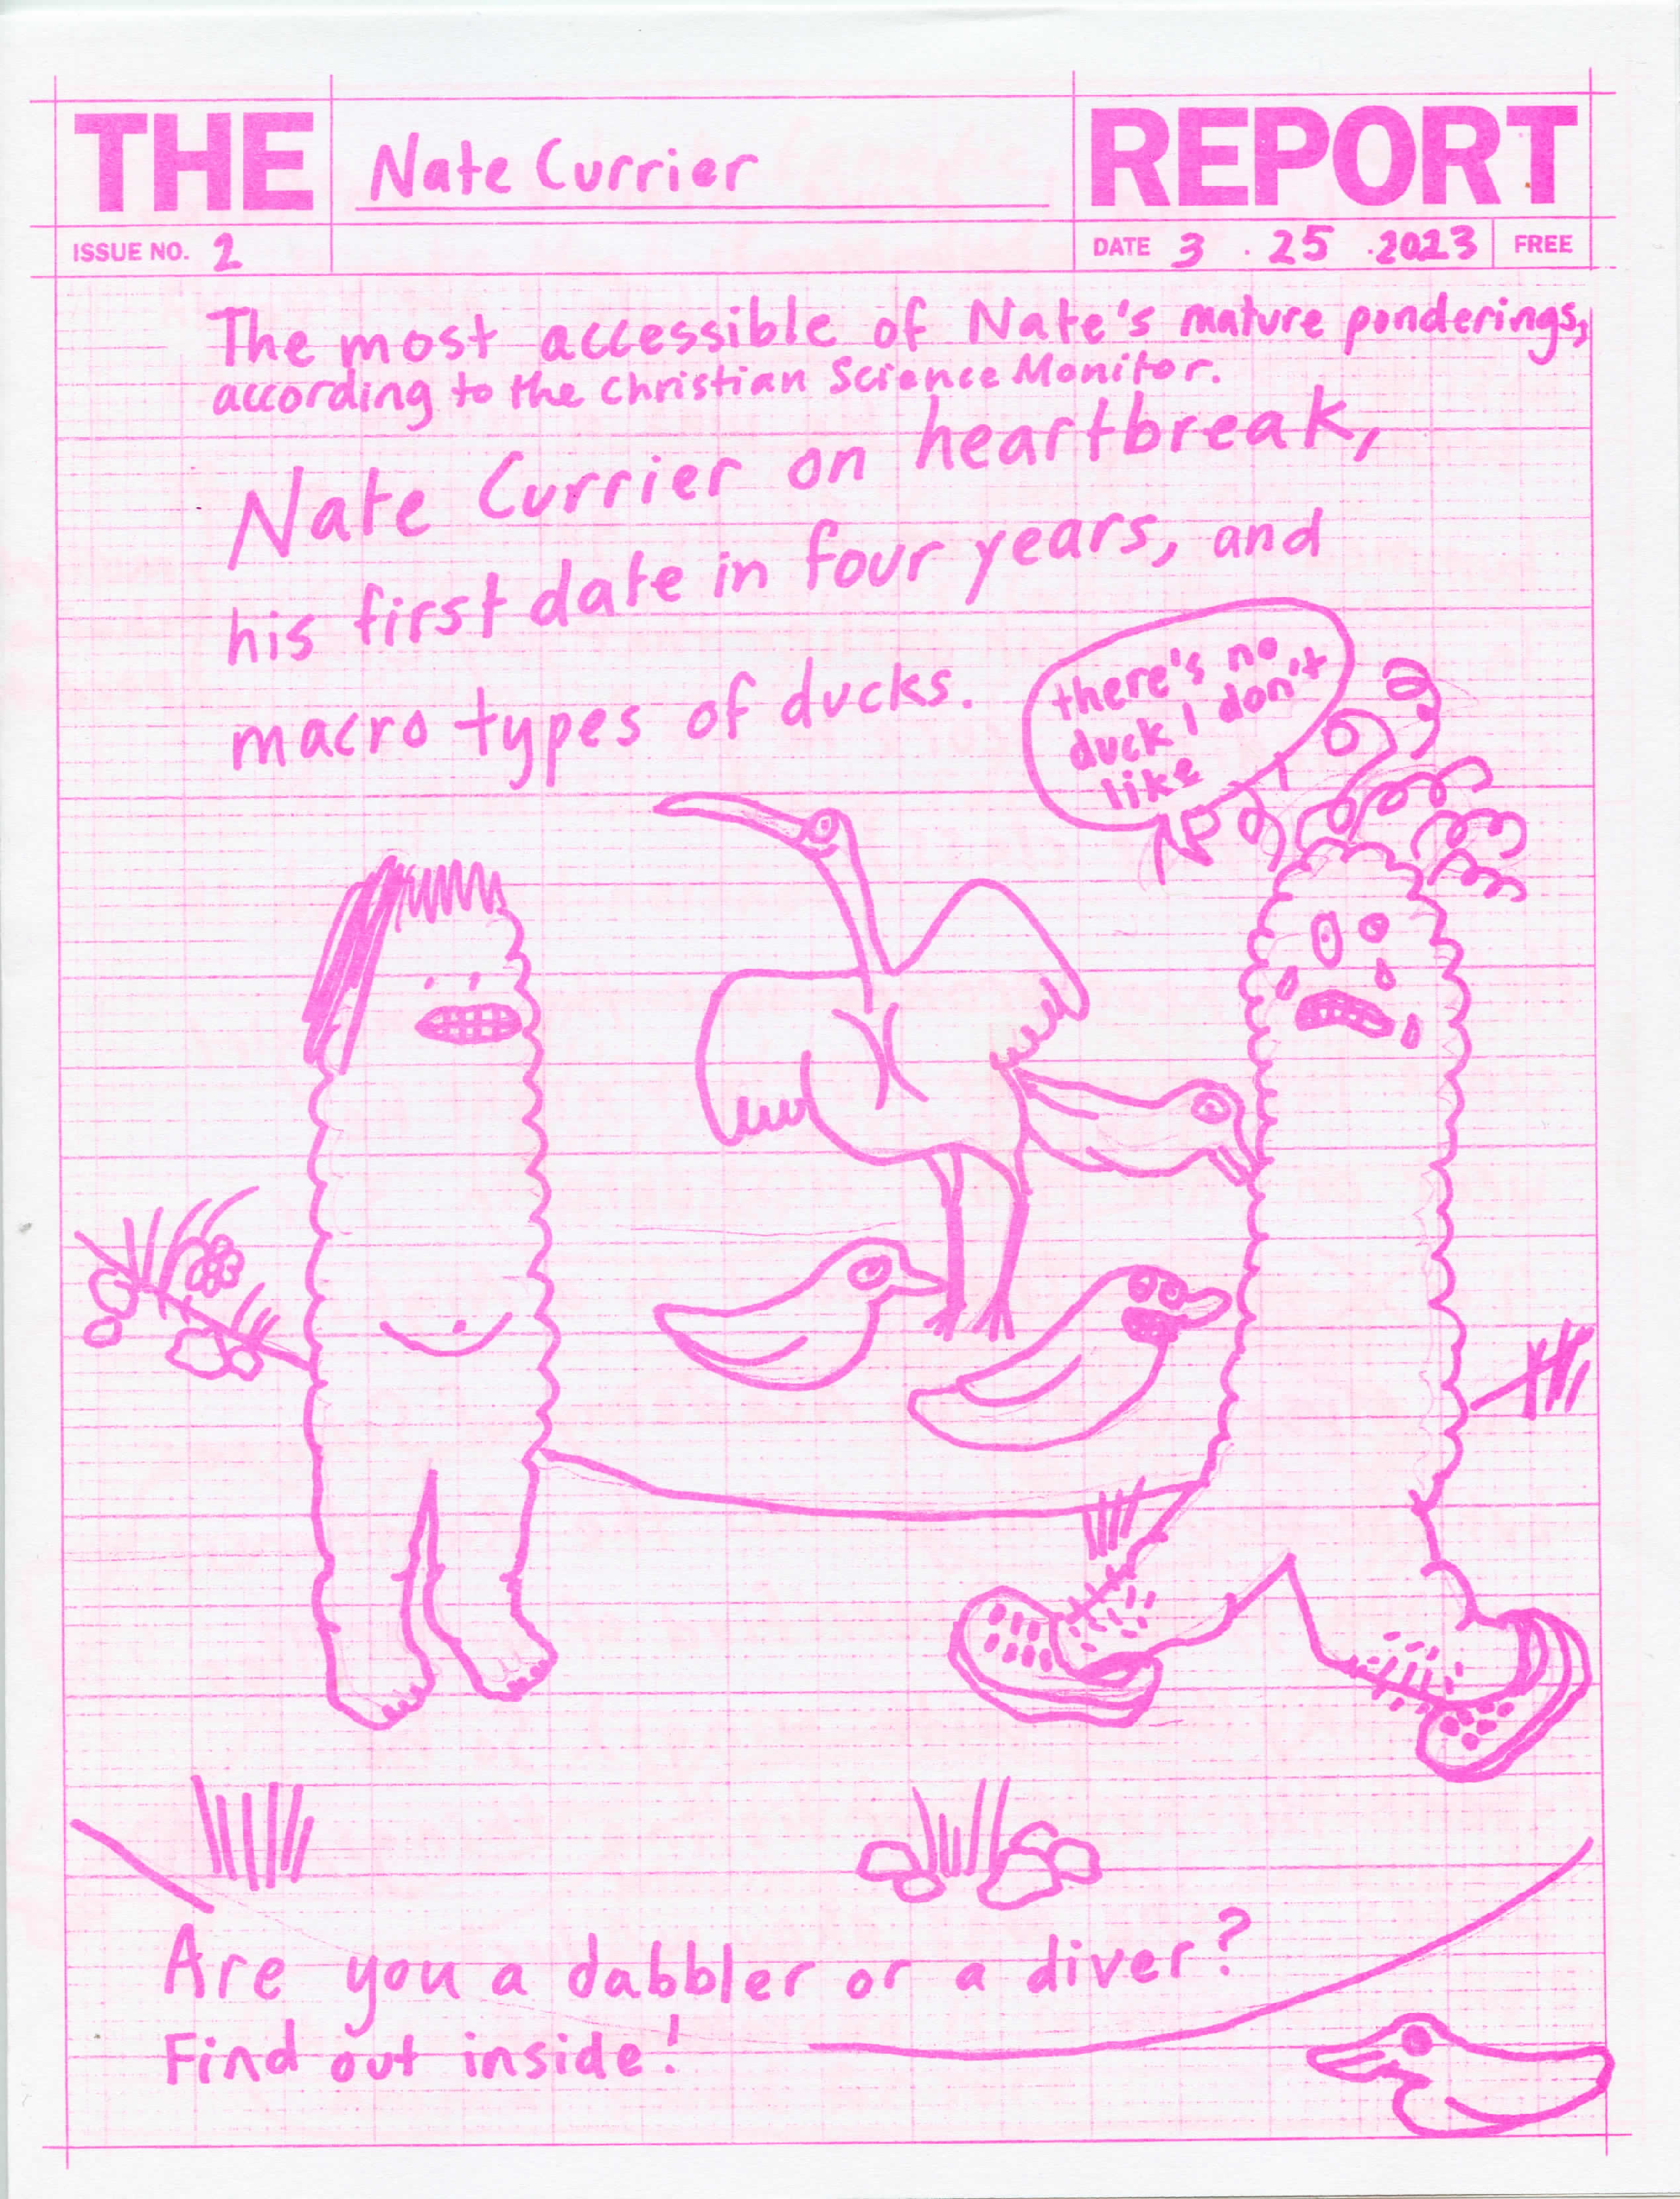 THE Nate Currier REPORT
ISSUE NO. 2 DATE 3 . 25 . 2023 FREE
The most accessible of Nate's mature ponderings,
according to the Christian Science Monitor.
Nate Currier on heartbreak,
his first date in four years, and
macro types of ducks.
there's no
duck I don't
like
Are you a dabbler or a diver?
Find out inside!